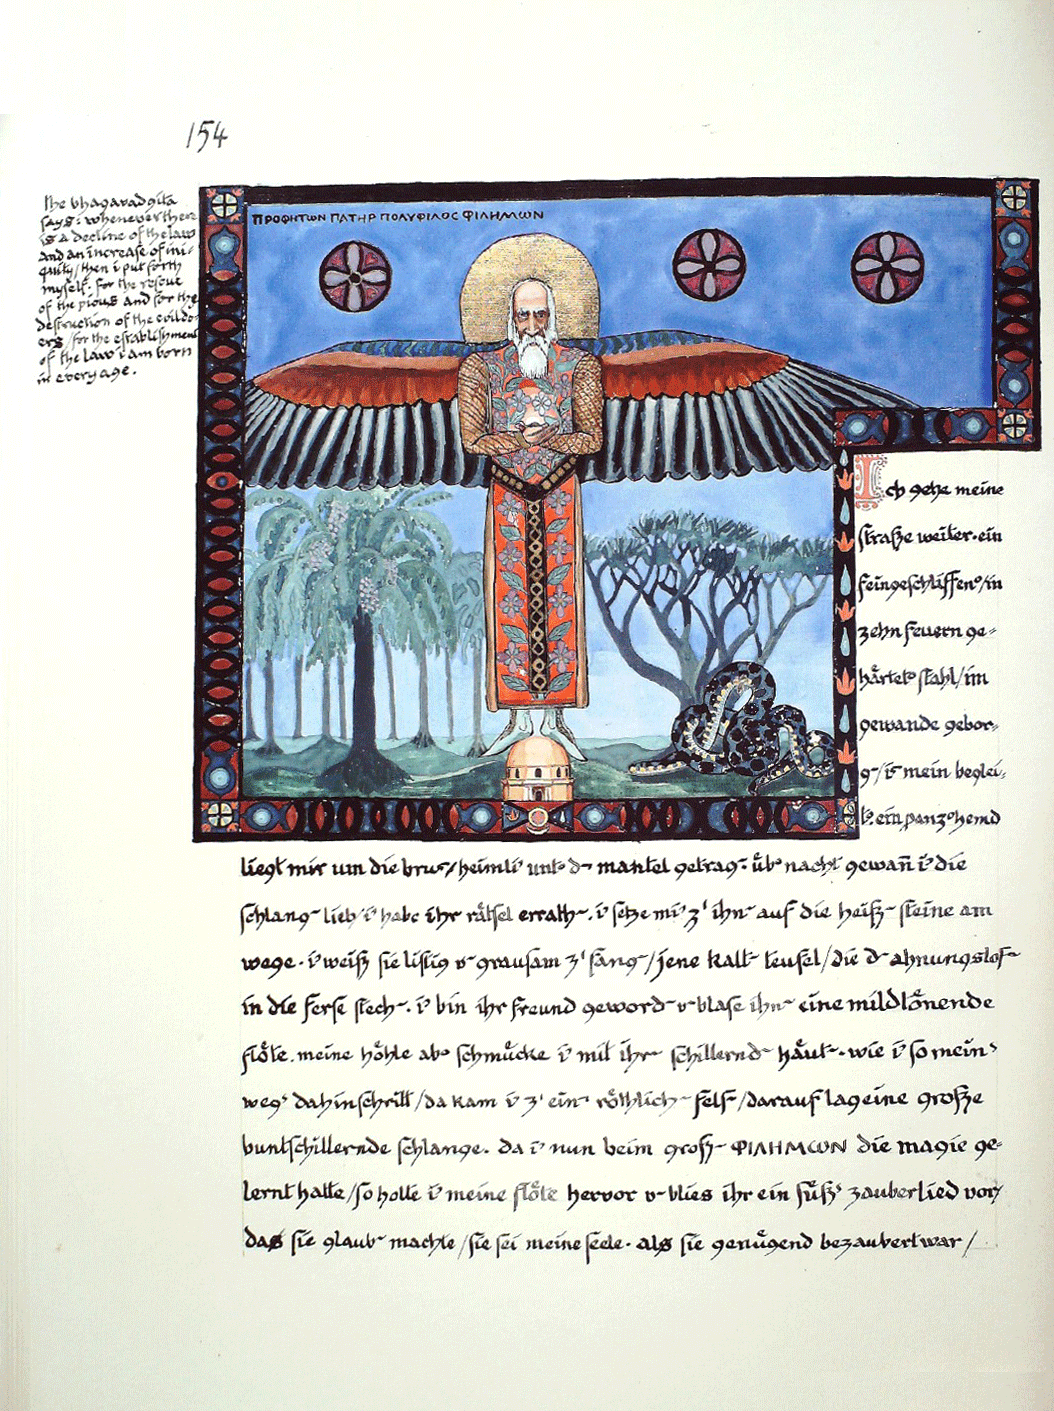 154
the bhagavadgita
says: whenever there
is a decline of the law
and an increase of ini-
quity/then i put forth
myself. for the rescue
of the pious and for the
destruction of the evildo-
ers/for the establishment
of the law i am born
in every age.
ΠΡΟΦΗΤΩΝ ΠΑΤΗΡ ΠΟΛΥΦΙΛΟΣ ΦΙΛΗΜΩΝ
Ich gehe meine
straße weiter. ein
feingeschliffen⁹/in
zehn feuern ge-
härtet⁹ stahl/im
gewande gebor-
g-/is mein beglei-
t⁹. ein panz⁹hemd
liegt mir um die brus/heimli unt⁹ d- mantel getrag-. üb⁹ nacht gewañ i die
schlang- lieb/i habe ihr rätsel errath-. i setze mi z' ihn- auf die heiß- steine am
wege. i weiß sie listig u- grausam z' fang-/jene kalt- teufel/die d- ahnungslos-
in die ferse stech-. i bin ihr freund geword- u- blase ihn- eine mildtönende
flöte. meine höhle ab⁹ schmücke i mit ihr- schillernd- häut-. wie i so mein-
weg' dahinschritt/da kam i z' ein- röthlich- fels-/darauf lag eine große
buntschillernde schlange. da i nun beim groß- ΦΙΛΗΜΩΝ die magie ge-
lernt hatte/so holte i meine flöte hervor u- blies ihr ein süß' zauberlied vor/
das sie glaub- machte/sie sei meine seele. als sie genügend bezaubert war/